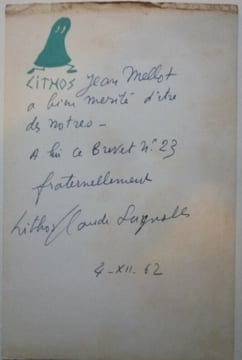 LITHOS Jean Mellot
a bien merité d'etre
des notres -
A lui ce Brevet N° 23
fraternellement
Lithos Claude
4-XII. 62